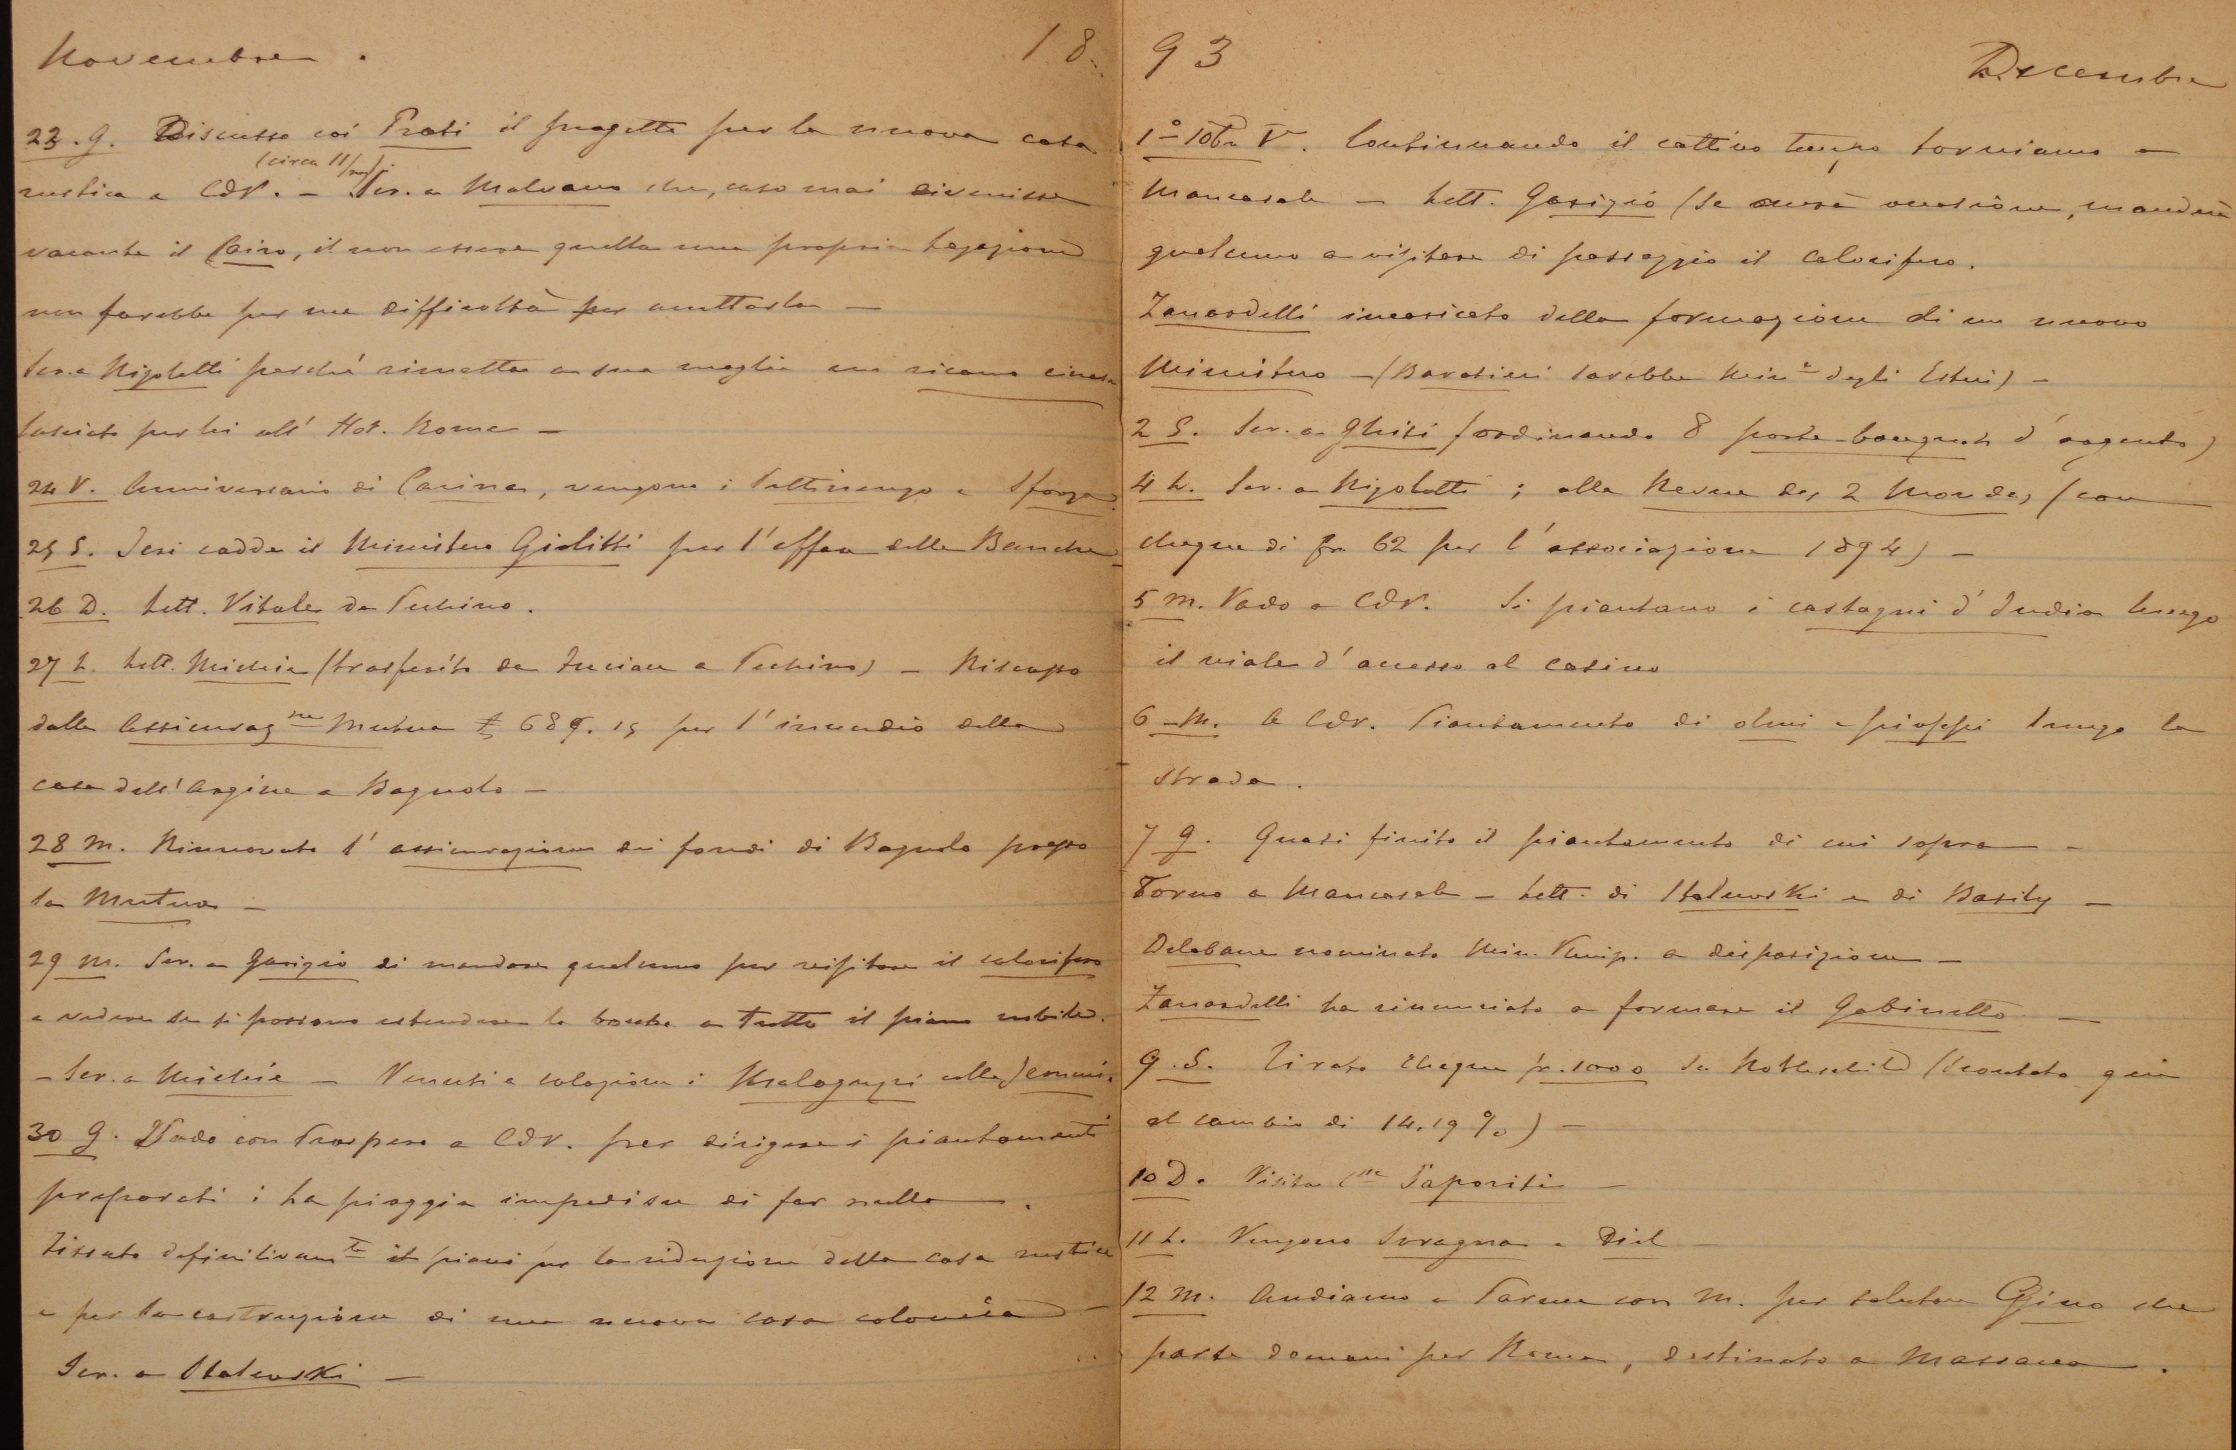 Novembre.
23. G. Discusso coi Prati il progetto per la nuova casa
(circa 11/m).
rustica a CdV. – Scr. a Malvano che, caso mai divenisse
vacante il Cairo, il non essere quella una propria Legazione
non farebbe per me difficoltà per accettarla –
Scr. a Rigoletti perché rimetta a sua moglie un ricamo cinese
lasciato per lei all' Hot. Roma –
24 V. Anniversario di Carina, vengono i Pattinengo e Sforza
25 S. Ieri cadde il Ministero Giolitti per l'affare delle Banche
26 D. Lett. Vitale da Pechino.
27 L. Lett. Michie (trasferito da a Pechino) – Riscosso
dalla Assicuraz.ne Mutua £ 689.15 per l'incendio della
casa dell'Argine a Bagnolo –
28 M. Rinnovato l'assicurazione dei fondi di Bagnolo presso
la Mutua –
29 M. Scr. a Garizio di mandare qualcuno per visitare il calorifero
e vedere se si possono estendere le bocche a tutto il piano nobile.
– Scr. a Michie – Venuti a colazione i Malaguzzi colla
30 G. Vado con Prospero a CdV. per dirigere i piantamenti
preparati; la pioggia impedisce di far nulla.
Fissato definitivam.te il piani per la riduzione della casa rustica
e per la costruzione di una nuova casa colonica –
Scr. a Stalewski –
1893
Decembre
1º Xbre V. Continuando il cattivo tempo torniamo a
Mancasale – Lett. Garizio (Se avrà occasione, manderà
qualcuno a visitare di passaggio il calorifero.
Zanardelli incaricato della formazione di un nuovo
Ministero – (Baratieri sarebbe Min.e degli Esteri) –
2 S. Scr. a Ghisi (ordinando 8 porte-bouquets d'argento)
4 L. Scr. a Rigolotti; alla Revue des 2 Mondes (con
cheque di fr 62 per l'associazione 1894) –
5 M. Vado a CdV. Si piantano i castagni d'India lungo
il viale d'accesso al casino
6 M. A CdV. Piantamento di olmi e pioppi lungo la
strada.
7 G. Quasi finito il piantamento di cui sopra –
Torno a Mancasale – Lett. di Stalewski e di Basily –
Delabane nominato Min. Plenip. a disposizione –
Zanardelli ha rinunciato a formare il Gabinetto –
9. S. Tirato cheque fr. 1000 su Rothschild (scontato qui
al cambio di 14.19 %) –
10 D. Visita C.sse Saporiti –
11 L. Vengono Soragna e Diel –
12 M. Andiamo a Parma con M. per salutare Gino che
parte domani per Roma, destinato a Massaua.